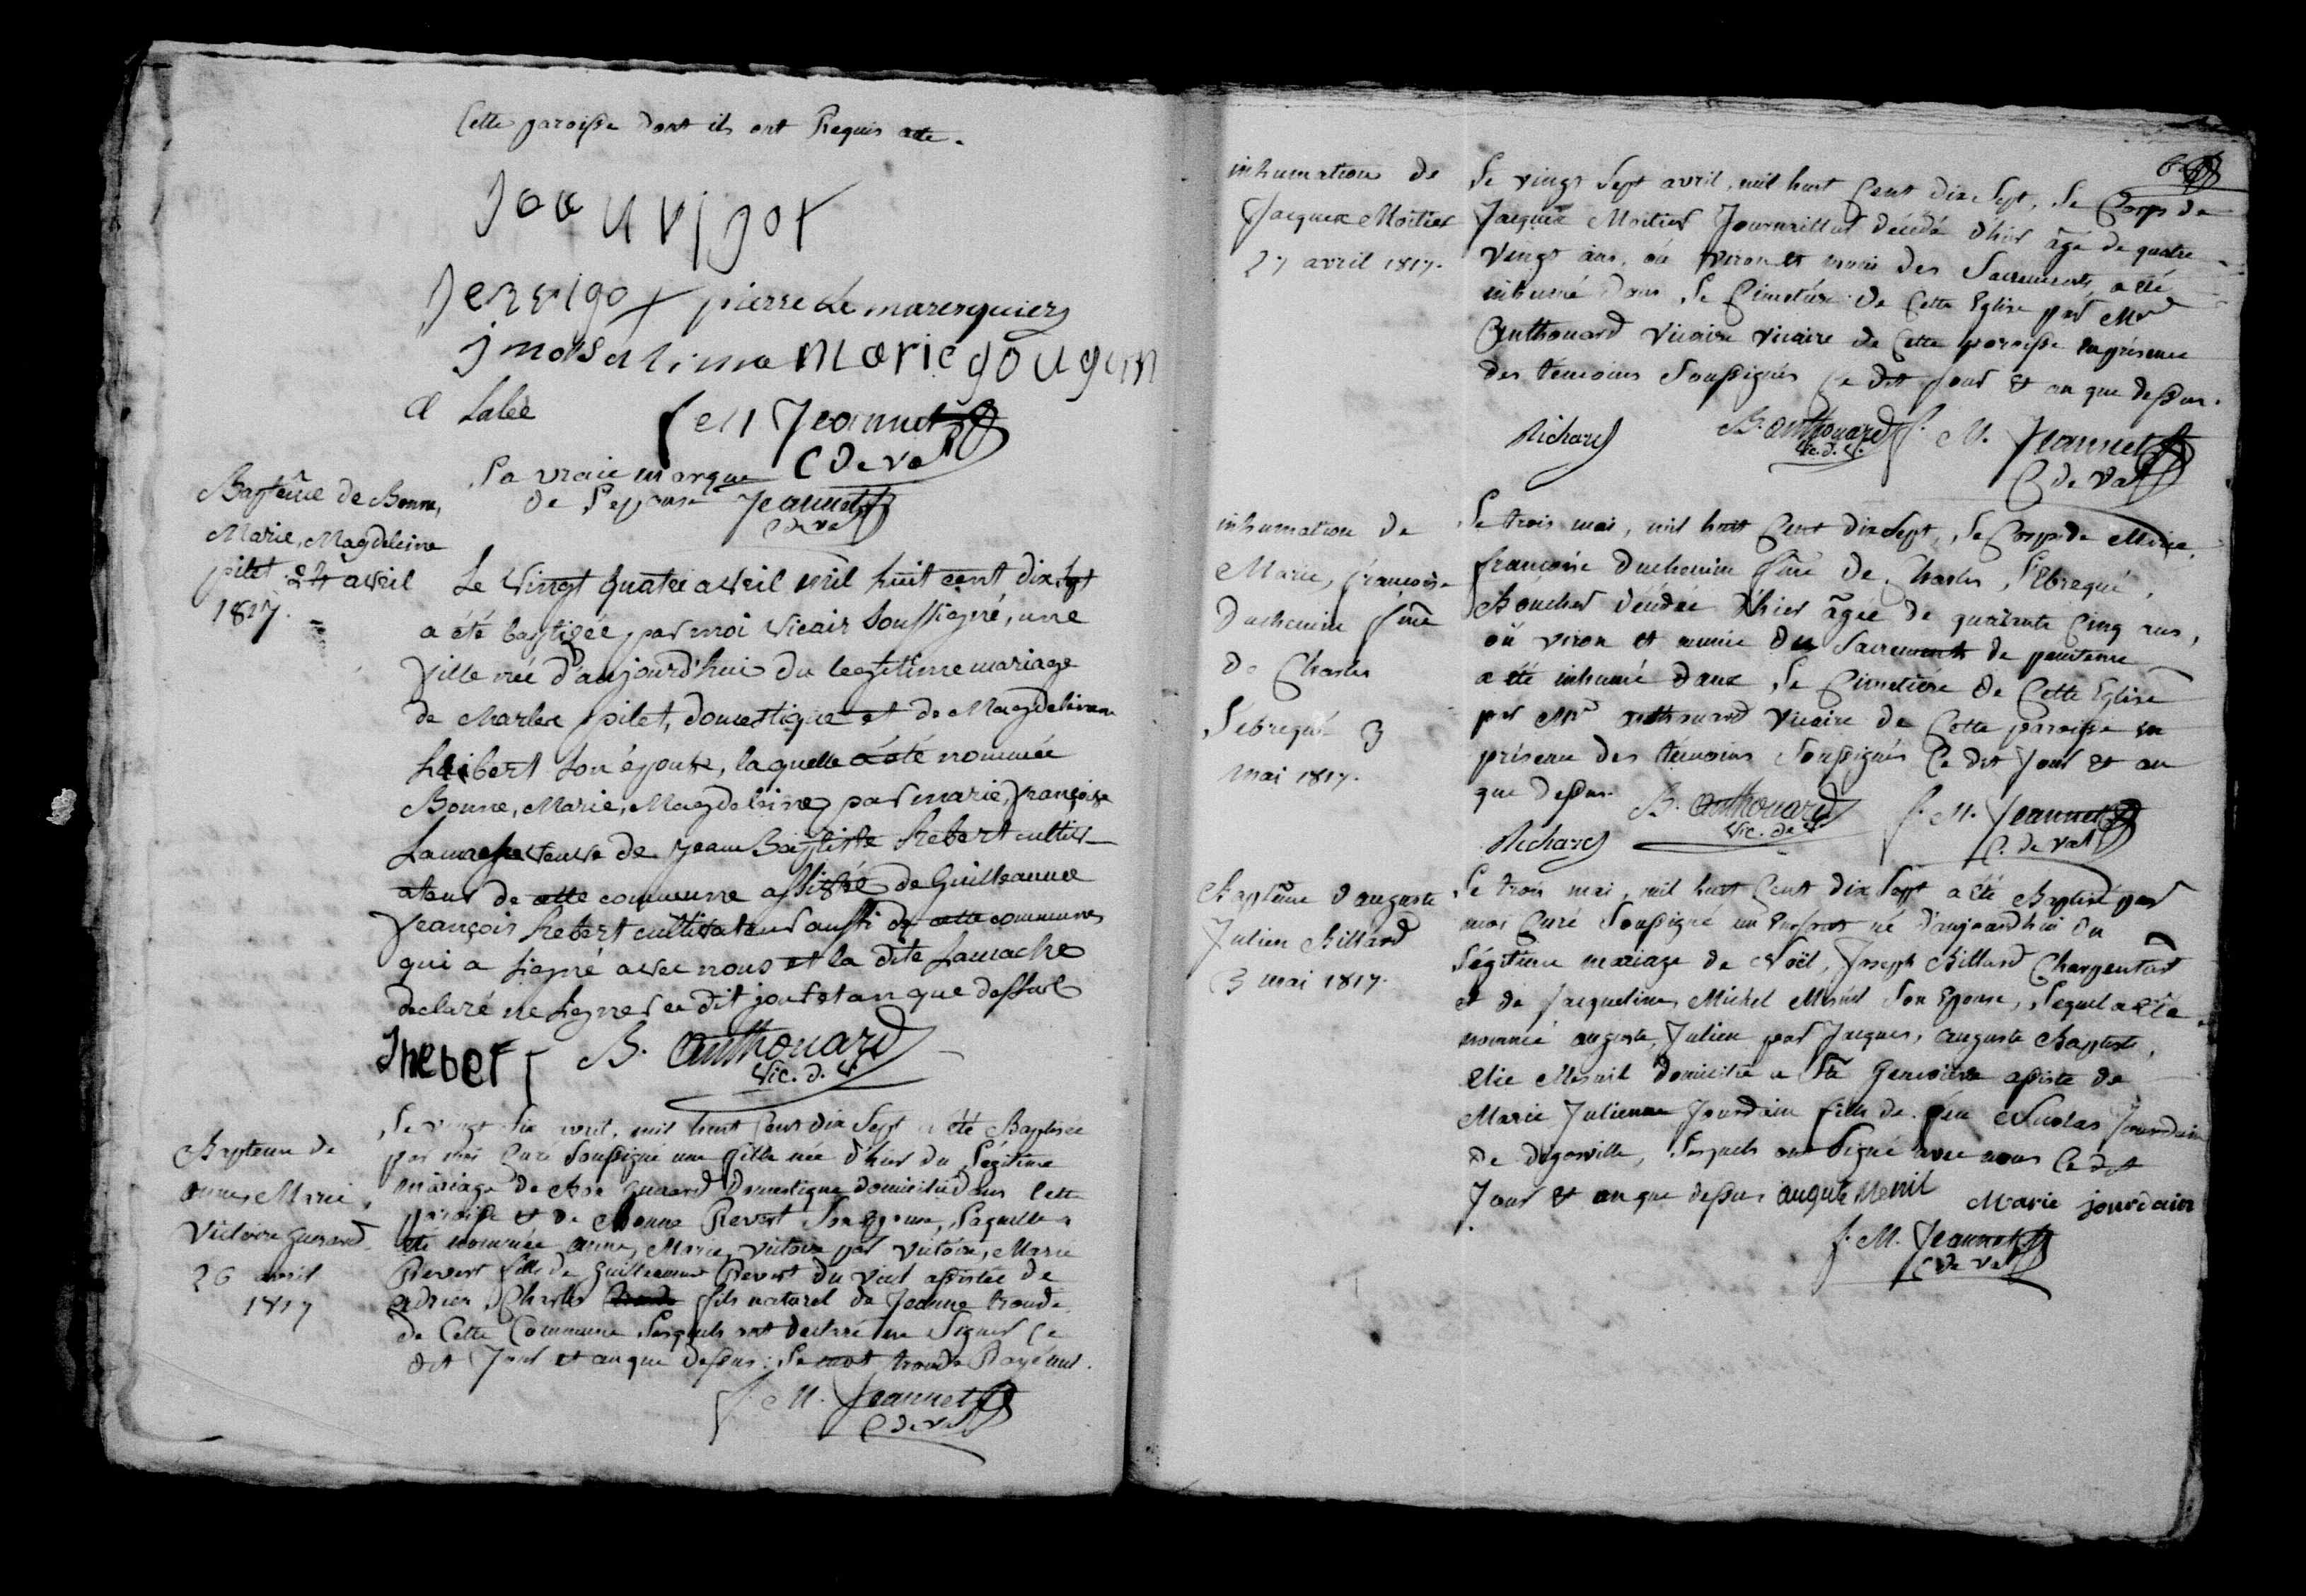 Cette paroisse dont ils ont Requis acte.
pierre Le maresquier
marie gougon
Jeannet
C de va
La vraie marque
de L'epouse Jeannet
C de va
Baptême de Bonne,
Marie, Magdeleine
pilet 24 avril
1817.
Le Vingt quatre avril mil huit cent dix sept
a été baptisée par moi vicair soussigné, une
fille née d'aujourd'hui du legitime mariage
de Charles pilet, domestique et de Magdeleine
hébert son épouse, laquelle a été nommée
Bonne, Marie, Magdeleine par marie, françoise
Lamache veuve de jean Baptiste hebert cultiv-
ateur de cette commune assistée de Guilleaume
françois hebert cultivateur aussi de cette commune
qui a signé avec nous et la dite Lamache
declaré ne signer ce dit jour et an que dessus
Jhebert B. Anthouard
vic. d. v.
Bapteme de
anne, Marie,
Victoire guerard
26 avril
1817
Le vingt six avril, mil huit Cent dix Sept a été Baptisée
par moi Curé Soussigné une fille née d'hier du Légitime
mariage de Bon guerard Domestique domicilié dans Cette
paroisse et de Bonne Revert Son Epouse, Laquelle a
été nommée anne, Marie, victoire par victoire, Marie
Revert fille de Guilleaume Revert du vicel assistée de
adrien Charles troude fils naturel de Jeanne troude
de Cette Commune Lesquels ont declaré ne Signer Ce
dit Jour et an que dessus: Le mot troude Rayé nul.
f. M. Jeannet
C de va
inhumation de
Jacques Moitier
27 avril 1817.
Le vingt Sept avril, mil huit Cent dix Sept, Le Corps de
Jacques Moitier Journaillier décédé d'hier âgé de quatre
vingt ans, ou viron et muni des Sacrements, a été
inhumé dans Le Cimetière de Cette Eglise par Mr
Anthouard vicaire vicaire de Cette paroisse en présence
des témoins Soussignés Ce dit Jour et an que dessus.
Richard B. Anthouard f. M. Jeannet
vic. d. v. C de va
inhumation de
Marie, françoise
Duchemin fme
de Charles
L'ébrequé 3
mai 1817.
Le trois mai, mil huit Cent dix Sept, Le Corps de Marie,
françoise Duchemin fme de Charles, L'ébrequé,
Boucher décédée d'hier âgée de quarante Cinq ans,
ou viron et munie du Sacrement de penitence
a été inhumé dans Le Cimetière de Cette Eglise
par Mr Anthouard vicaire de Cette paroisse en
présence des témoins Soussignés Ce dit Jour et an
que dessus. B. Anthouard f. M. Jeannet
Richard vic. de v. C. de va
Baptême d'auguste
Julien Billard
3 mai 1817.
Le trois mai, mil huit Cent dix Sept a été Baptisé par
moi Curé Soussigné un Enfant né d'aujourdhui du
Légitime mariage de Noël, Joseph Billard Charpentier
et de Jacqueline Michel Mesnil Son Epouse, Lequel a été
nommé auguste, Julien par Jacques, auguste Baptiste,
Elie Mesnil domicilié a Ste Genevieve assisté de
Marie Julienne Jourdain fille de feu Nicolas Jourdain
de digosville, Lesquels ont Signé avec nous Ce dit
Jour et an que dessus auguste Menil Marie jourdain
f. M. Jeannet
C de va